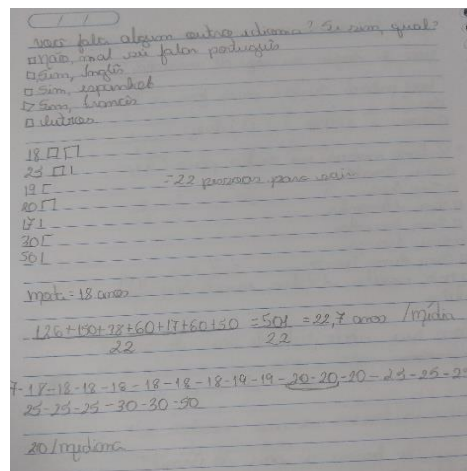 / /
você fala algum outro idioma? Se sim, qual?
□ não, mal sei falar português
□ Sim, Inglês
□ Sim, espanhol
□ Sim, francês
□ Outros
18
25
19
20 = 22 pessoas para sair
17
30
50
moda = 18 anos
126+150+38+60+17+60+50 = 501 = 22,7 anos /média
22 22
7-18-18-18-18-18-18-18-19-19-20-20-20-25-25-25
25-25-25-30-30-50
20/mediana